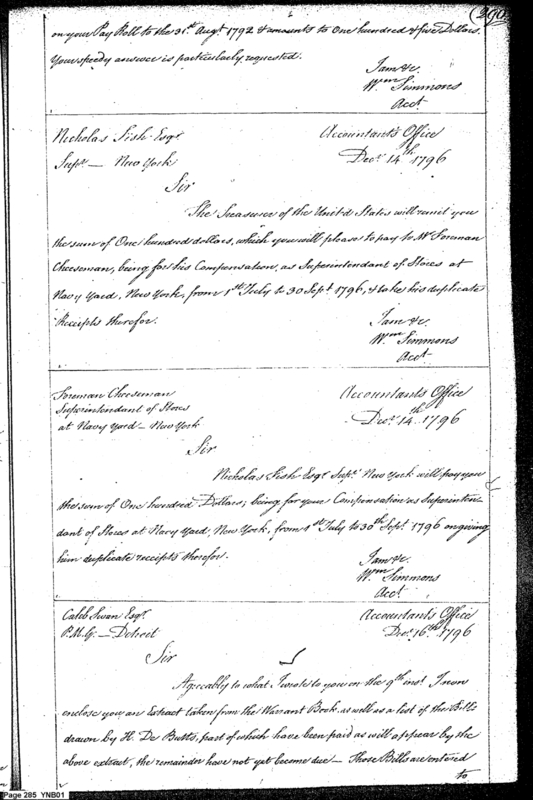 (290)
on your Pay Roll to the 31st Augt 1792 & amounts to One hundred & five Dollars.
Your speedy answer is particularly requested.
I am &c.
Wm Simmons
Acct
Nicholas Fish Esqr.
Accountant's Office
Supt. — New York
Decr. 14th 1796
Sir
The Treasurer of the United States will remit you
the sum of One hundred dollars, which you will please to pay to Mr. Forman
Cheeseman, being for his Compensation, as Superintendant of Stores at
Navy Yard, New York, from 1st July to 30 Sept. 1796, & take his duplicate
Receipts therefor.
I am &c.
Wm Simmons
Acct
Foreman Cheeseman
Accountants Office
Superintendant of Stores
Decr. 14th 1796
at Navy Yard — New York
Sir
Nicholas Fish Esqr. Supt. New York will pay you
the sum of One hundred Dollars; being for your Compensation as Superinten-
dant of Stores at Navy Yard, New York, from 1st July to 30th Sept. 1796 on giving
him duplicate receipts therefor.
I am &c.
Wm Simmons
Acct
Caleb Swan Esqr.
Accountants Office
P.M.G. — Detroit
Decr. 16th 1796
Sir
Agreeably to what I wrote to you on the 9th inst. I now
enclose you an Extract taken from the Warrant Book, as well as a list of the Bills
drawn by H. De Butts, part of which have been paid as will appear by the
above extract, the remainder have not yet become due — Those Bills are entered
to
Page 285 YNB01